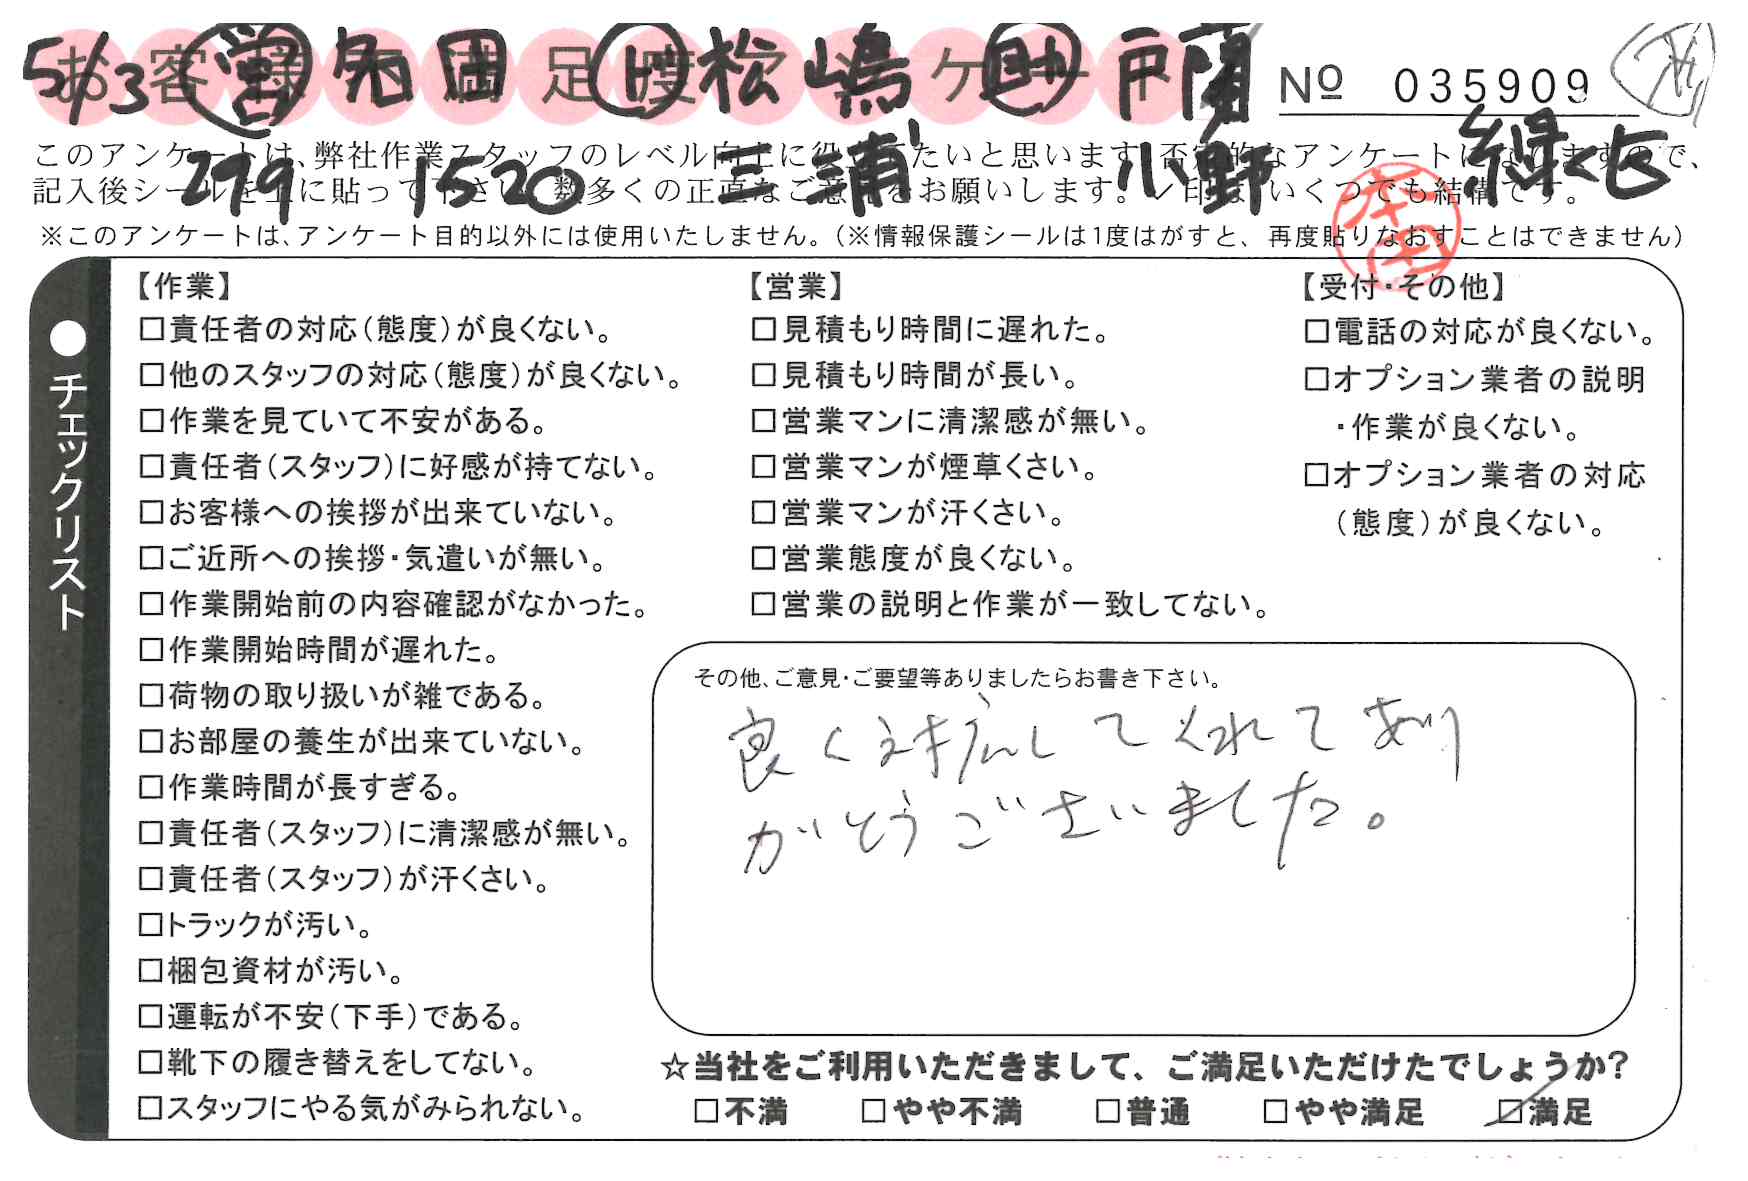 お客様満足度アンケート
5/3 営 名田 ド 松嶋 助 戸蘭
No 035909
299 1520 三浦 小野 緑ヒ
このアンケートは、弊社作業スタッフのレベル向上に役立てたいと思います。否定的なアンケートになりますので、
記入後シールを上に貼って下さい。数多くの正直なご意見をお願いします。✓印は、いくつでも結構です。
※このアンケートは、アンケート目的以外には使用いたしません。(※情報保護シールは1度はがすと、再度貼りなおすことはできません)
本田
●チェックリスト
【作業】
□責任者の対応(態度)が良くない。
□他のスタッフの対応(態度)が良くない。
□作業を見ていて不安がある。
□責任者(スタッフ)に好感が持てない。
□お客様への挨拶が出来ていない。
□ご近所への挨拶・気遣いが無い。
□作業開始前の内容確認がなかった。
□作業開始時間が遅れた。
□荷物の取り扱いが雑である。
□お部屋の養生が出来ていない。
□作業時間が長すぎる。
□責任者(スタッフ)に清潔感が無い。
□責任者(スタッフ)が汗くさい。
□トラックが汚い。
□梱包資材が汚い。
□運転が不安(下手)である。
□靴下の履き替えをしてない。
□スタッフにやる気がみられない。
【営業】
□見積もり時間に遅れた。
□見積もり時間が長い。
□営業マンに清潔感が無い。
□営業マンが煙草くさい。
□営業マンが汗くさい。
□営業態度が良くない。
□営業の説明と作業が一致してない。
【受付・その他】
□電話の対応が良くない。
□オプション業者の説明
・作業が良くない。
□オプション業者の対応
(態度)が良くない。
その他、ご意見・ご要望等ありましたらお書き下さい。
良く対応してくれてあり
がとうございました。
☆当社をご利用いただきまして、ご満足いただけたでしょうか?
□不満 □やや不満 □普通 □やや満足 ☑満足